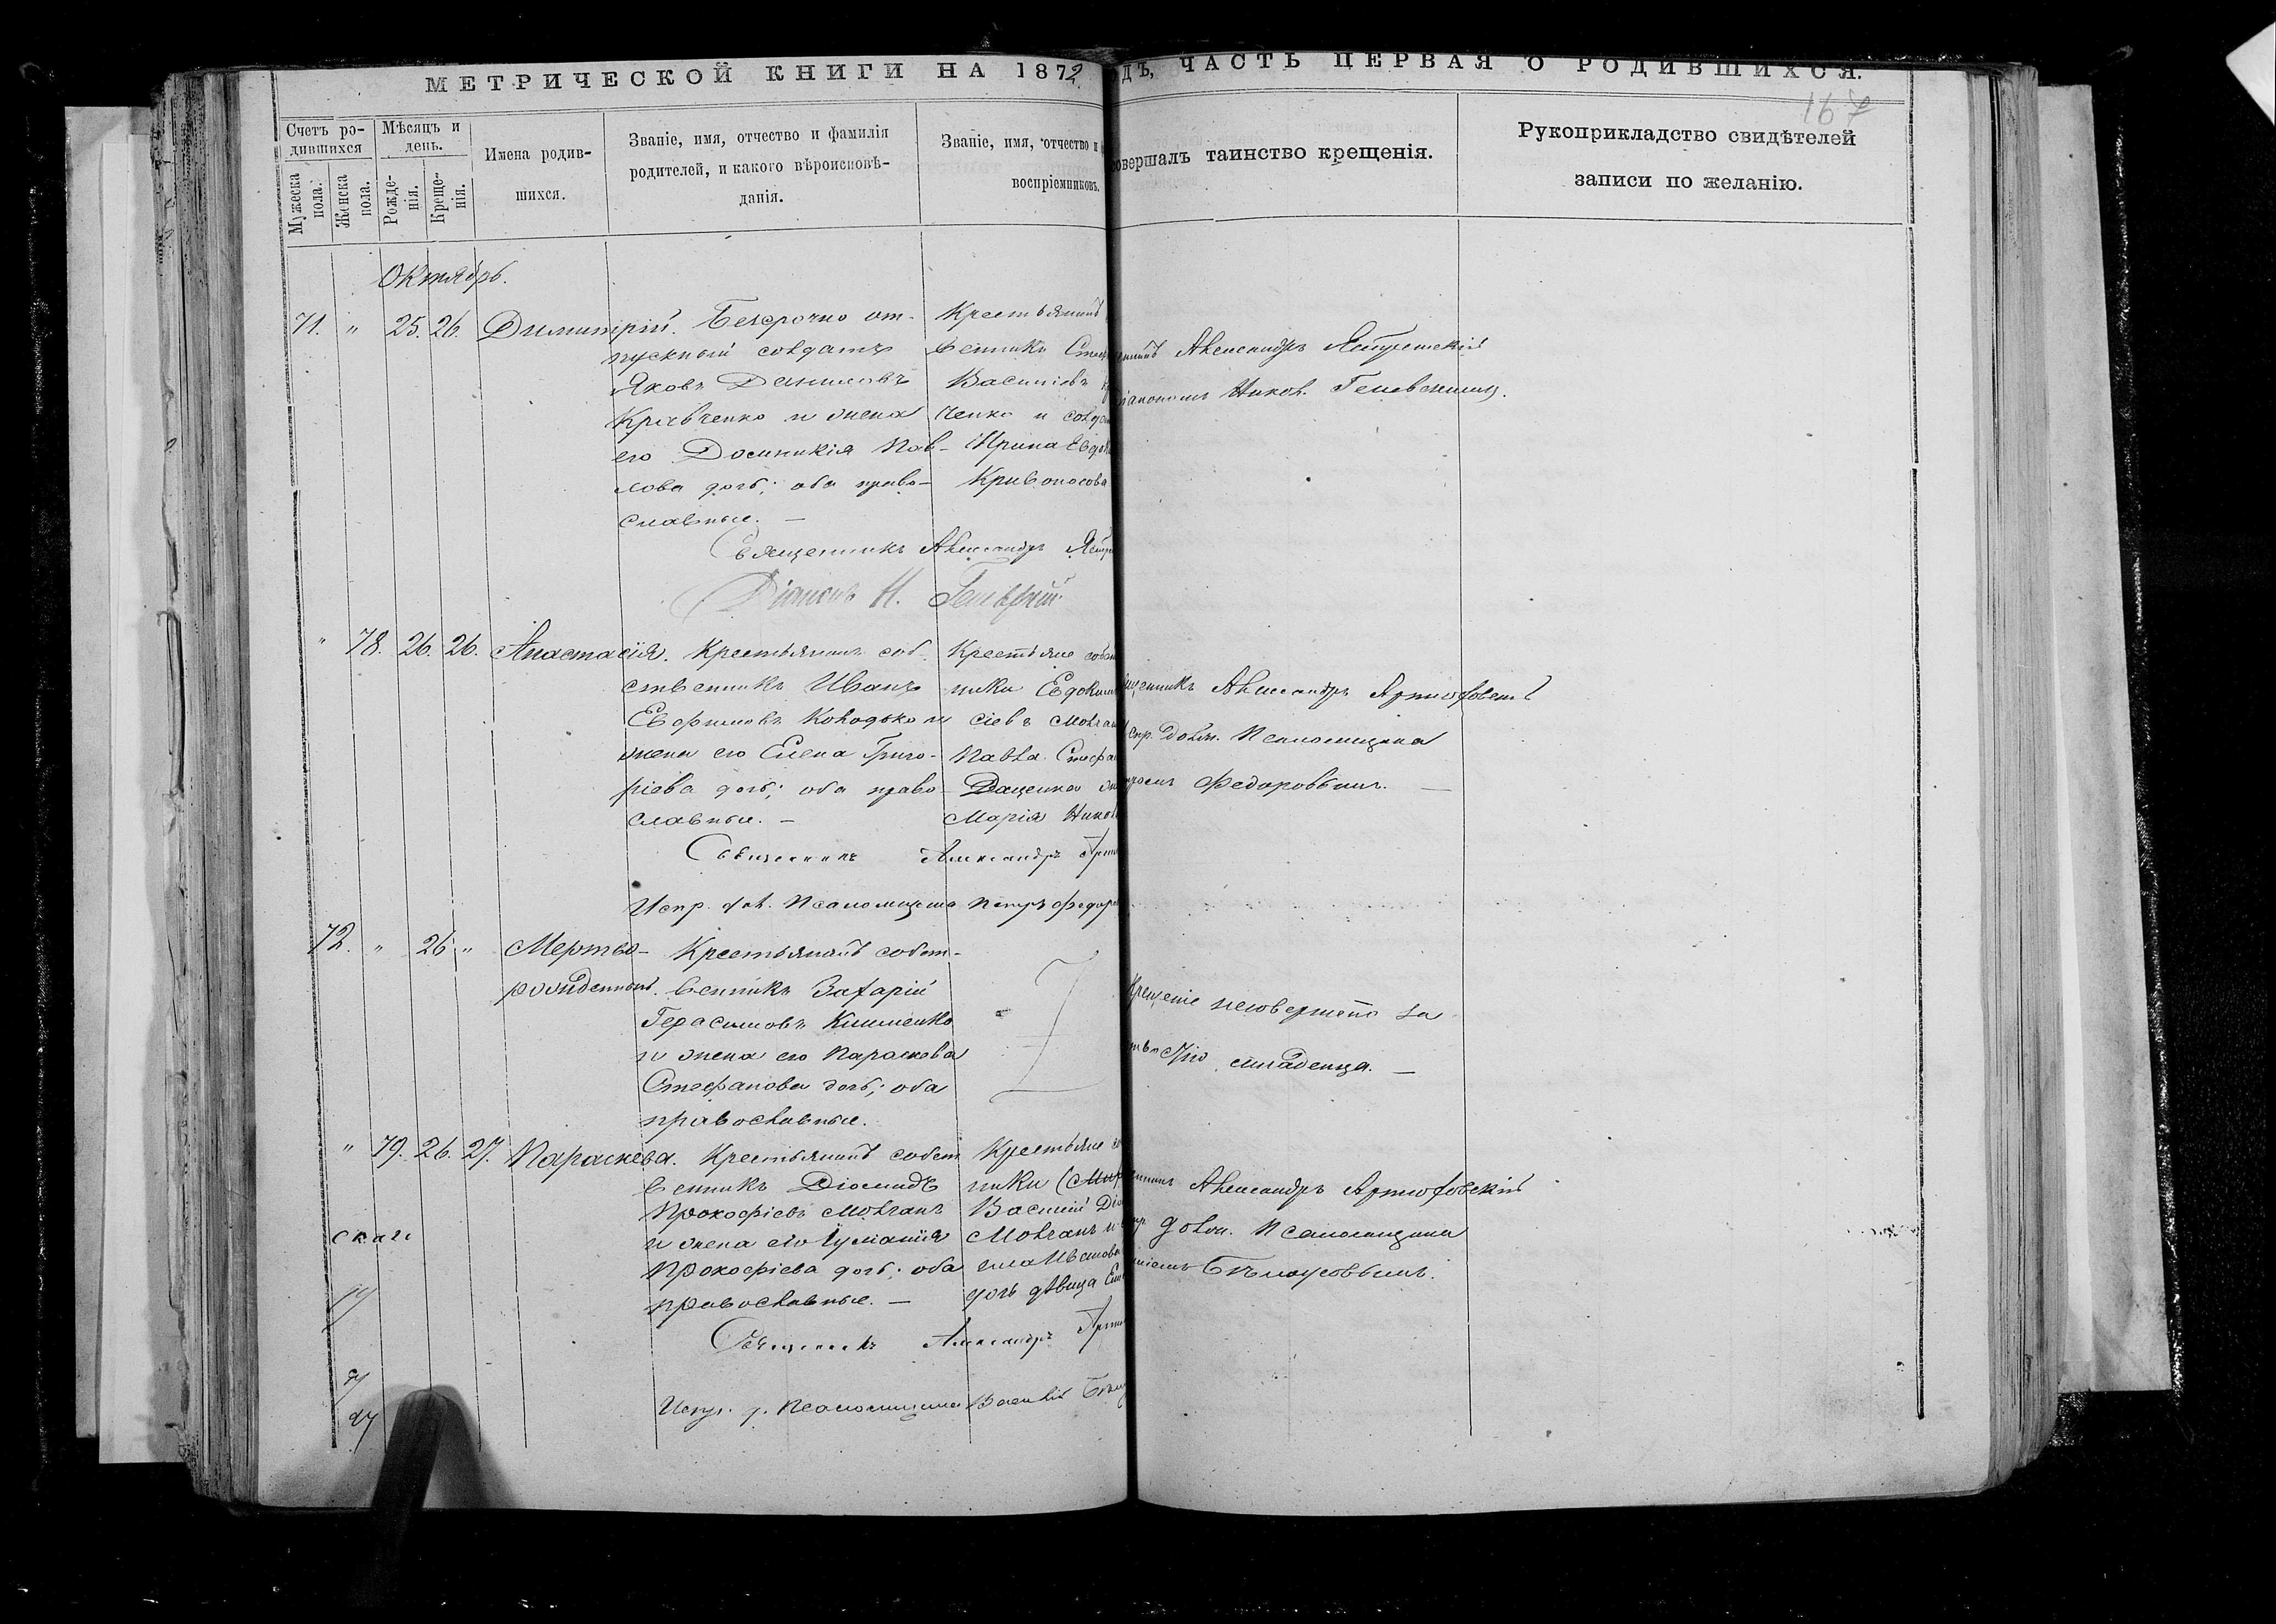 МЕТРИЧЕСКОЙ КНИГИ НА 1872
ДЪ, ЧАСТЬ ПЕРВАЯ О РОДИВШИХСЯ.
167
Счетъ ро-
дившихся
Мужеска пола.
Женска пола.
Мѣсяцъ и
день.
Рожде-
нія.
Креще-
нія.
Имена родив-
шихся.
Званіе, имя, отчество и фамилія
родителей, и какого вѣроисповѣ-
данія.
Званіе, имя, отчество и
воспріемниковъ.
совершалъ таинство крещенія.
Рукоприкладство свидѣтелей
записи по желанію.
Октябрь.
71. " 25. 26. Димитрій.
Безсрочно от-
пускной солдатъ
Яковъ Даниловъ
Кравченко и жена
его Домникія Пав-
лова дочь; оба право-
славные. —
Крестьянинъ
венникъ
Василіевъ
ченко и
Ирина
Кривоносова
Александръ
Діакономъ Никол.
Священникъ Александръ
Діаконъ Н.
" 78. 26. 26. Анастасія.
Крестьянинъ соб-
ственникъ Иванъ
Евфимовъ Колодько и
жена его Елена Григо-
ріева дочь; оба право-
славные. —
Крестьяне
ники
сіевъ Молчан
Павла
Даценко
Марія
щенникъ Александръ Артюховскій
испр. долж. Псаломщика
Федоровымъ. —
Священникъ Александръ
Испр. дол. Псаломщика Петръ
72. " 26 " Мертво-
рожденный.
Крестьянинъ собст-
венникъ Захарій
Герасимовъ Клименко
и жена его Параскева
Стефанова дочь; оба
православные.
Крещеніе несовершено за
младенца. —
" 79. 26. 27. Параскева.
Крестьянинъ собст
венникъ Діомидъ
Прокофіевъ Молчанъ
и жена его Іуліанія
Прокофіева дочь; оба
православные. —
Крестьяне
ники
Василій
Молчанъ и
Иванова
дочь дѣвица
Александръ Артюховскій
долж. Псаломщика
Бѣлоусовымъ.
Священникъ Александръ
Испр. д. Псаломщика Василій